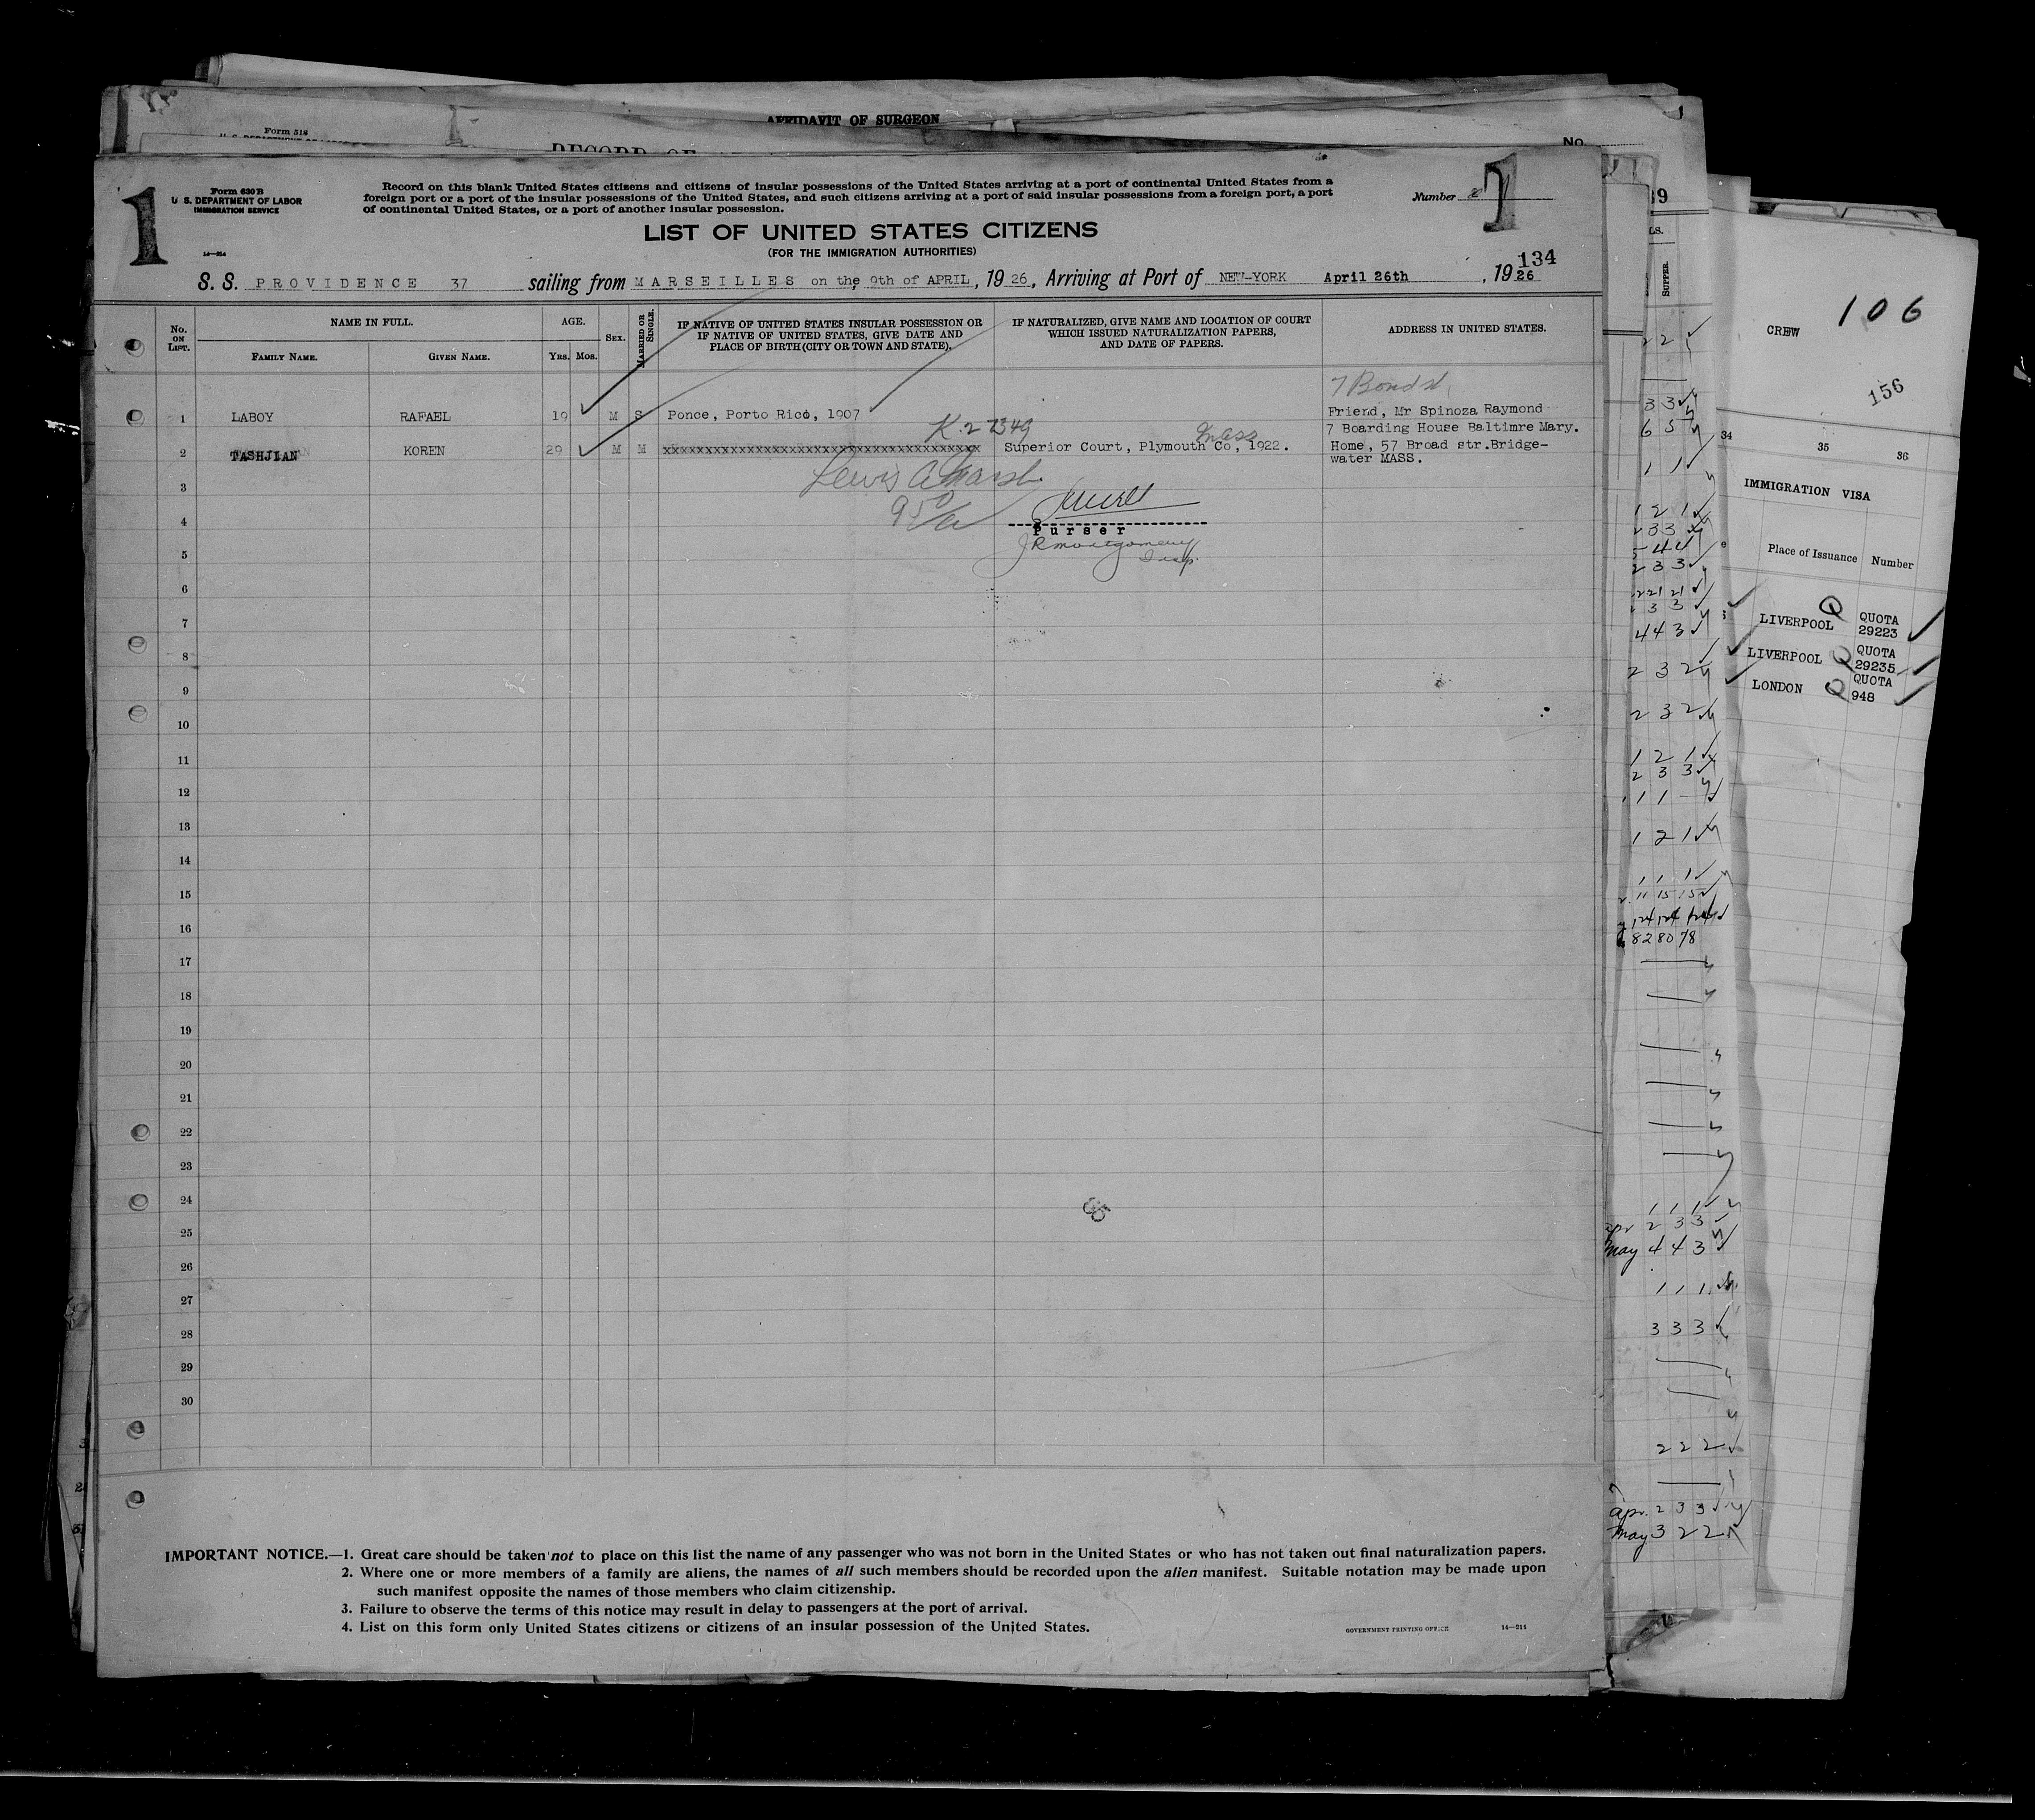 AFFIDAVIT OF SURGEON
Form 518
RECORD OF
No.
1
Form 630 B
U. S. DEPARTMENT OF LABOR
IMMIGRATION SERVICE
14—214
Record on this blank United States citizens and citizens of insular possessions of the United States arriving at a port of continental United States from a
foreign port or a port of the insular possessions of the United States, and such citizens arriving at a port of said insular possessions from a foreign port, a port
of continental United States, or a port of another insular possession.
Number
1
LIST OF UNITED STATES CITIZENS
(FOR THE IMMIGRATION AUTHORITIES)
134
S. S. PROVIDENCE 37 sailing from MARSEILLES on the 9th of APRIL, 1926, Arriving at Port of NEW-YORK April 26th, 1926
No. ON LIST.
NAME IN FULL.
FAMILY NAME.
GIVEN NAME.
AGE.
YRS. MOS.
SEX.
MARRIED OR SINGLE.
IF NATIVE OF UNITED STATES INSULAR POSSESSION OR
IF NATIVE OF UNITED STATES, GIVE DATE AND
PLACE OF BIRTH (CITY OR TOWN AND STATE).
IF NATURALIZED, GIVE NAME AND LOCATION OF COURT
WHICH ISSUED NATURALIZATION PAPERS,
AND DATE OF PAPERS.
ADDRESS IN UNITED STATES.
7 Bond st.
1 LABOY RAFAEL 19 M S Ponce, Porto Rico, 1907 Friend, Mr Spinoza Raymond
7 Boarding House Baltimre Mary.
K.27349
Mass
2 TASHJIAN KOREN 29 M M xxxxxxxxxxxxxxxxxxxxxxxxxxxxxxxxxxxxxxxx Superior Court, Plymouth Co, 1922. Home, 57 Broad str.Bridge-
water MASS.
3
Lewis A Marsh
4
Purser
JR Montgomery
Insp.
5
6
7
8
9
10
11
12
13
14
15
16
17
18
19
20
21
22
23
24
25
26
27
28
29
30
IMPORTANT NOTICE.—1. Great care should be taken not to place on this list the name of any passenger who was not born in the United States or who has not taken out final naturalization papers.
2. Where one or more members of a family are aliens, the names of all such members should be recorded upon the alien manifest. Suitable notation may be made upon
such manifest opposite the names of those members who claim citizenship.
3. Failure to observe the terms of this notice may result in delay to passengers at the port of arrival.
4. List on this form only United States citizens or citizens of an insular possession of the United States.
GOVERNMENT PRINTING OFFICE 14—214
SUPPER.
CREW
106
156
34 35 36
IMMIGRATION VISA
Place of Issuance Number
LIVERPOOL Q QUOTA
29223
LIVERPOOL Q QUOTA
29235
LONDON Q QUOTA
948
1 2 1
2 3 3
4 4 3
2 3 2
2 3 2
1 2 1
2 3 3
1 2 1
82 80 78
1 1 1
apr 2 3 3
May 4 4 3
1 1 1
3 3 3
2 2 2
apr. 2 3 3
May 3 2 2